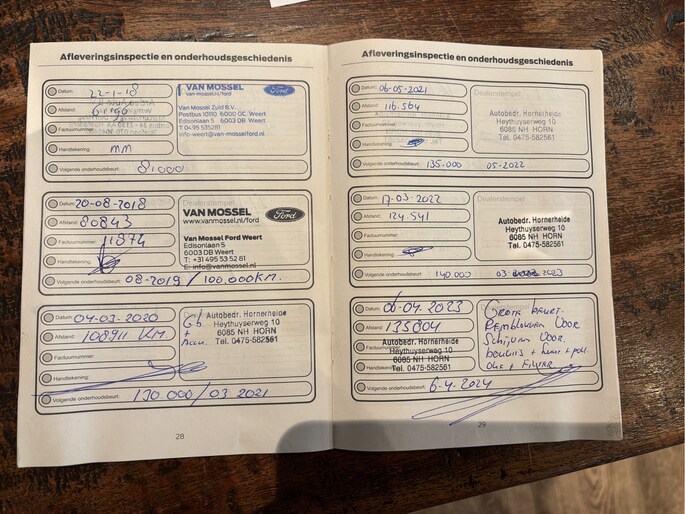 Afleveringsinspectie en onderhoudsgeschiedenis
Datum: 22-1-18
Afstand:
Factuurnummer:
Handtekening: mm
Volgende onderhoudsbeurt: 81000
VAN MOSSEL Ford
van-mossel.nl/ford
Van Mossel Zuid B.V.
Postbus 10110 6000 GC Weert
Edisonlaan 5 6003 DB Weert
T 04 95 535281
info-weert@van-mosselford.nl
Datum: 20-08-2018
Afstand: 80843
Factuurnummer: 11874
Handtekening:
Volgende onderhoudsbeurt: 08-2019 / 100.000KM.
Dealerstempel
VAN MOSSEL Ford
www.vanmossel.nl/ford
Van Mossel Ford Weert
Edisonlaan 5
6003 DB Weert
T: +31 495 53 52 81
E: info@vanmossel.nl
Datum: 04-03-2020
Afstand: 108911 KM
Factuurnummer:
Handtekening:
Volgende onderhoudsbeurt: 130 000 / 03 2021
Autobedr. Hornerheide
Heythuyserweg 10
6085 NH HORN
Tel. 0475-582561
28
Afleveringsinspectie en onderhoudsgeschiedenis
Datum: 06-05-2021
Afstand: 116.564
Factuurnummer:
Handtekening:
Volgende onderhoudsbeurt: 135.000 05-2022
Dealerstempel
Autobedr. Hornerheide
Heythuyserweg 10
6085 NH HORN
Tel. 0475-582561
Datum: 17-03-2022
Afstand: 124.541
Factuurnummer:
Handtekening:
Volgende onderhoudsbeurt: 140.000 03 2023
Dealerstempel
Autobedr. Hornerheide
Heythuyserweg 10
6085 NH HORN
Tel. 0475-582561
Datum: 06-04-2023
Afstand: 135804
Autobedr. Hornerheide
Heythuyserweg 10
6085 NH HORN
Tel. 0475-582561
Volgende onderhoudsbeurt: 6-4-2024
Grote beurt.
Remblokken Voor
Schijven Voor.
Olie + Filter
29